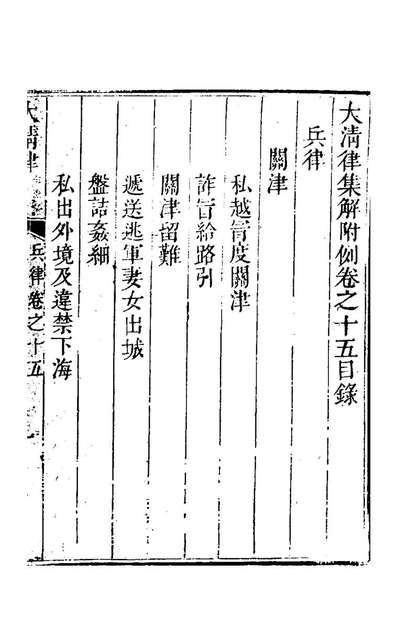 大清律集解附例卷之十五目錄
兵律
關津
私越冒度關津
詐冒給路引
關津留難
遞送逃軍妻女出城
盤詰姦細
私出外境及違禁下海
大清律
兵律卷之十五